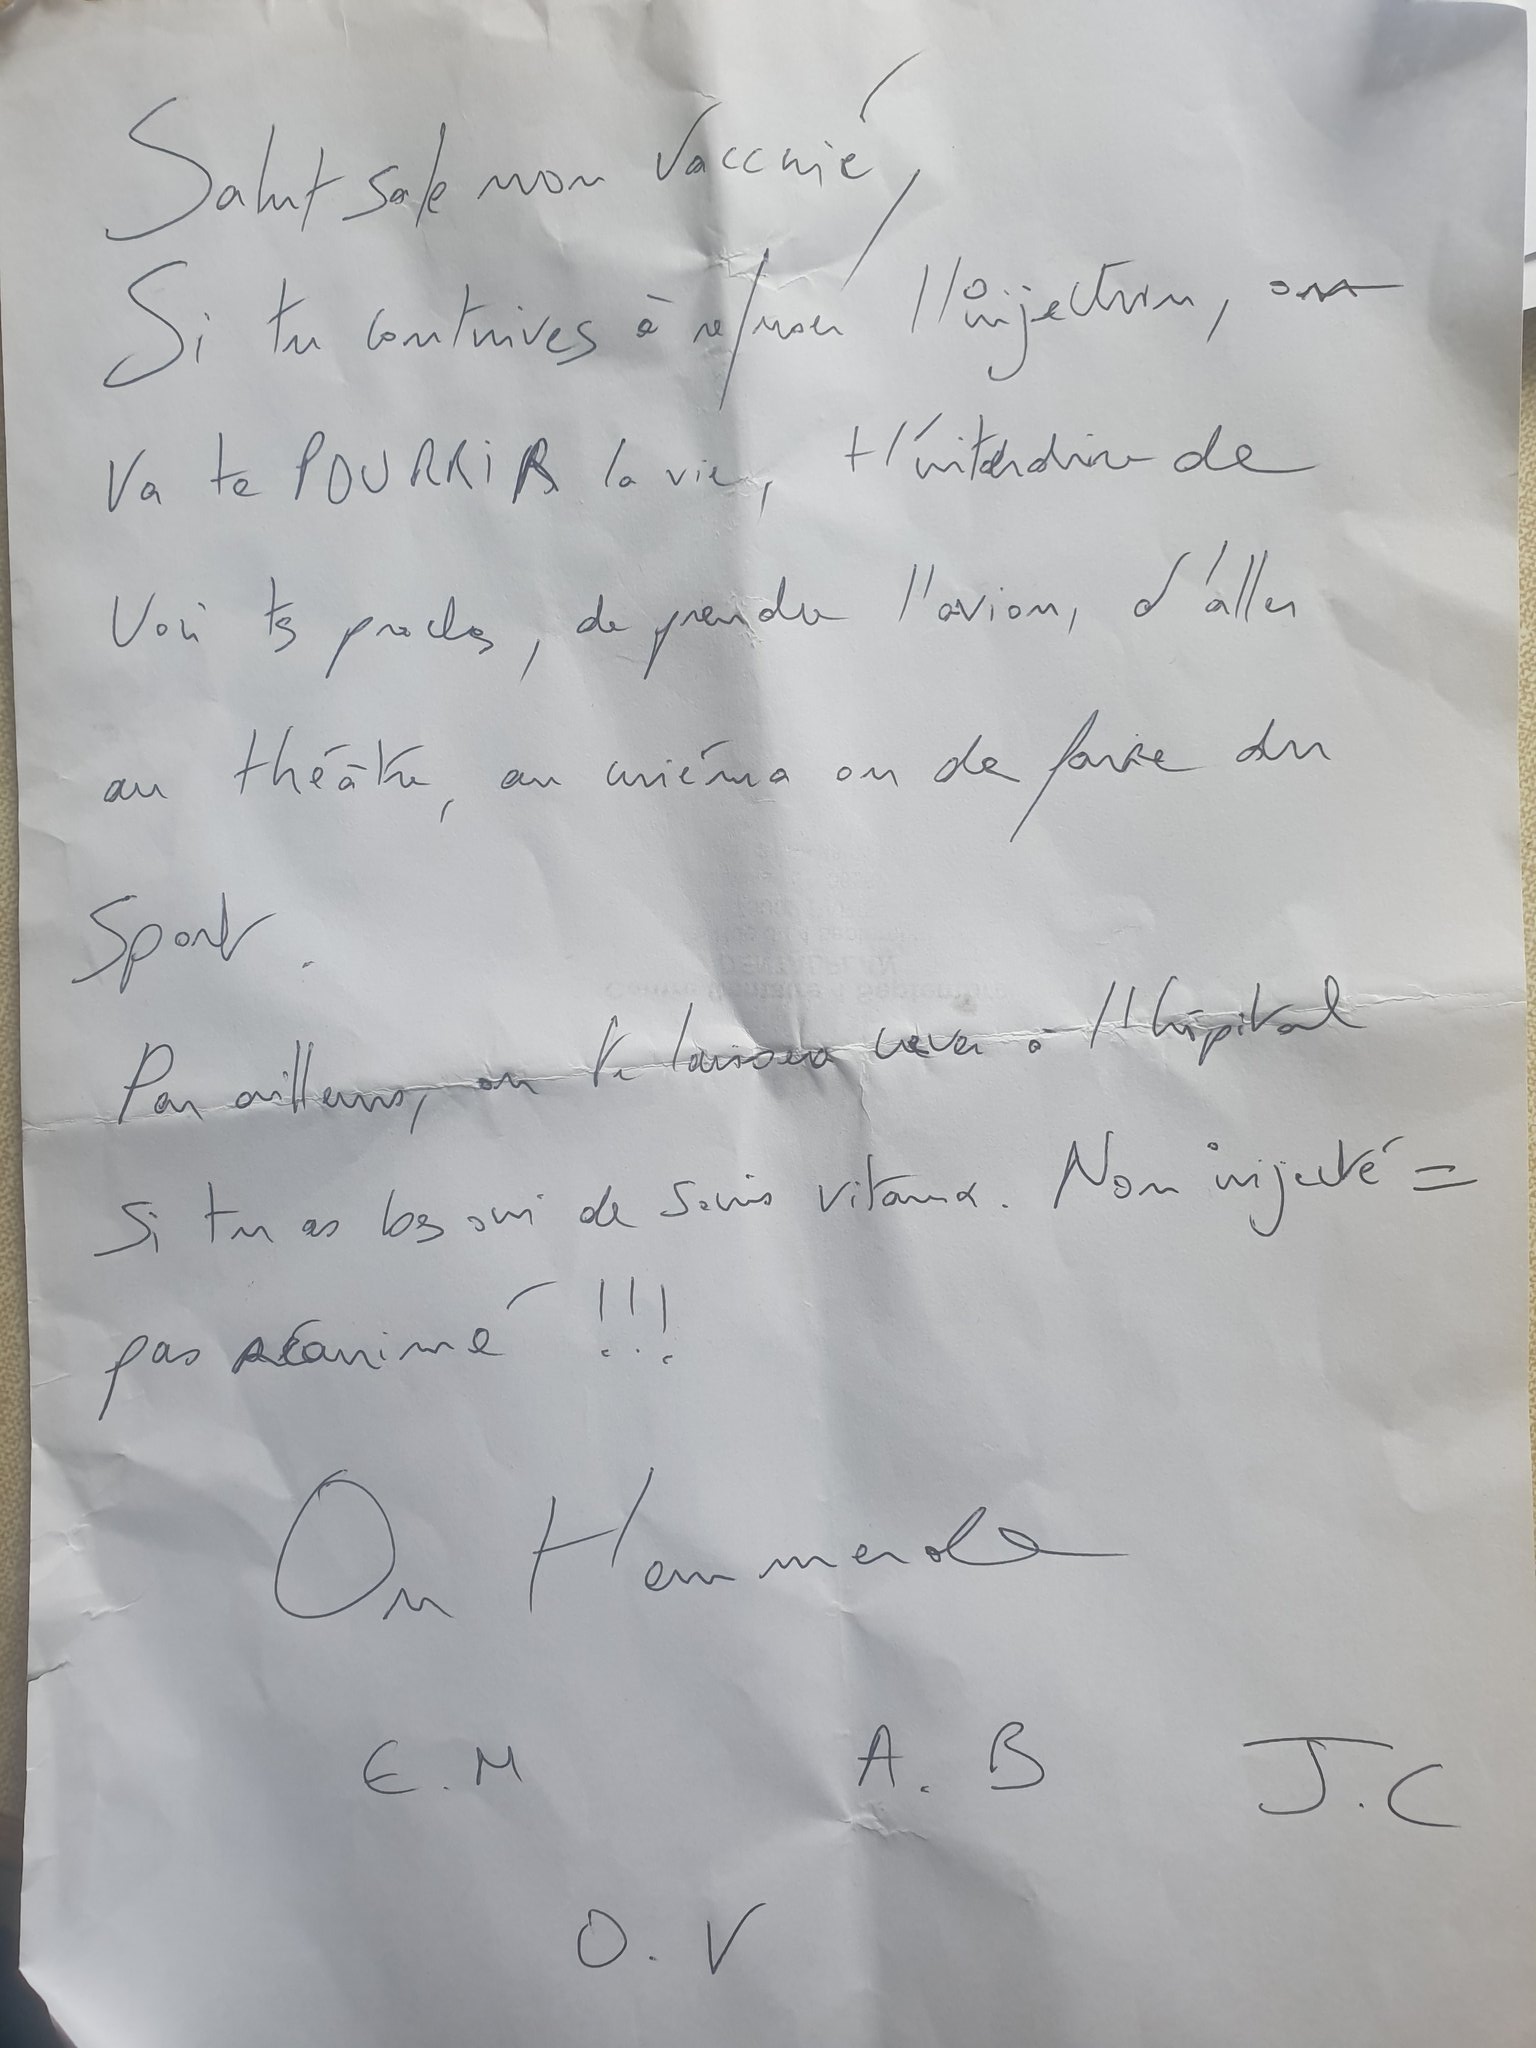 Salut sale non vacciné,
Si tu continues à refuser l'injection, on
va te POURRIR la vie, t'interdire de
voir tes proches, de prendre l'avion, d'aller
au théâtre, au cinéma ou de faire du
sport.
Par ailleurs, on te laissera crever à l'hôpital
si tu as besoin de soins vitaux. Non injecté =
pas réanimé !!!
On t'emmerde
E.M A.B J.C
O.V